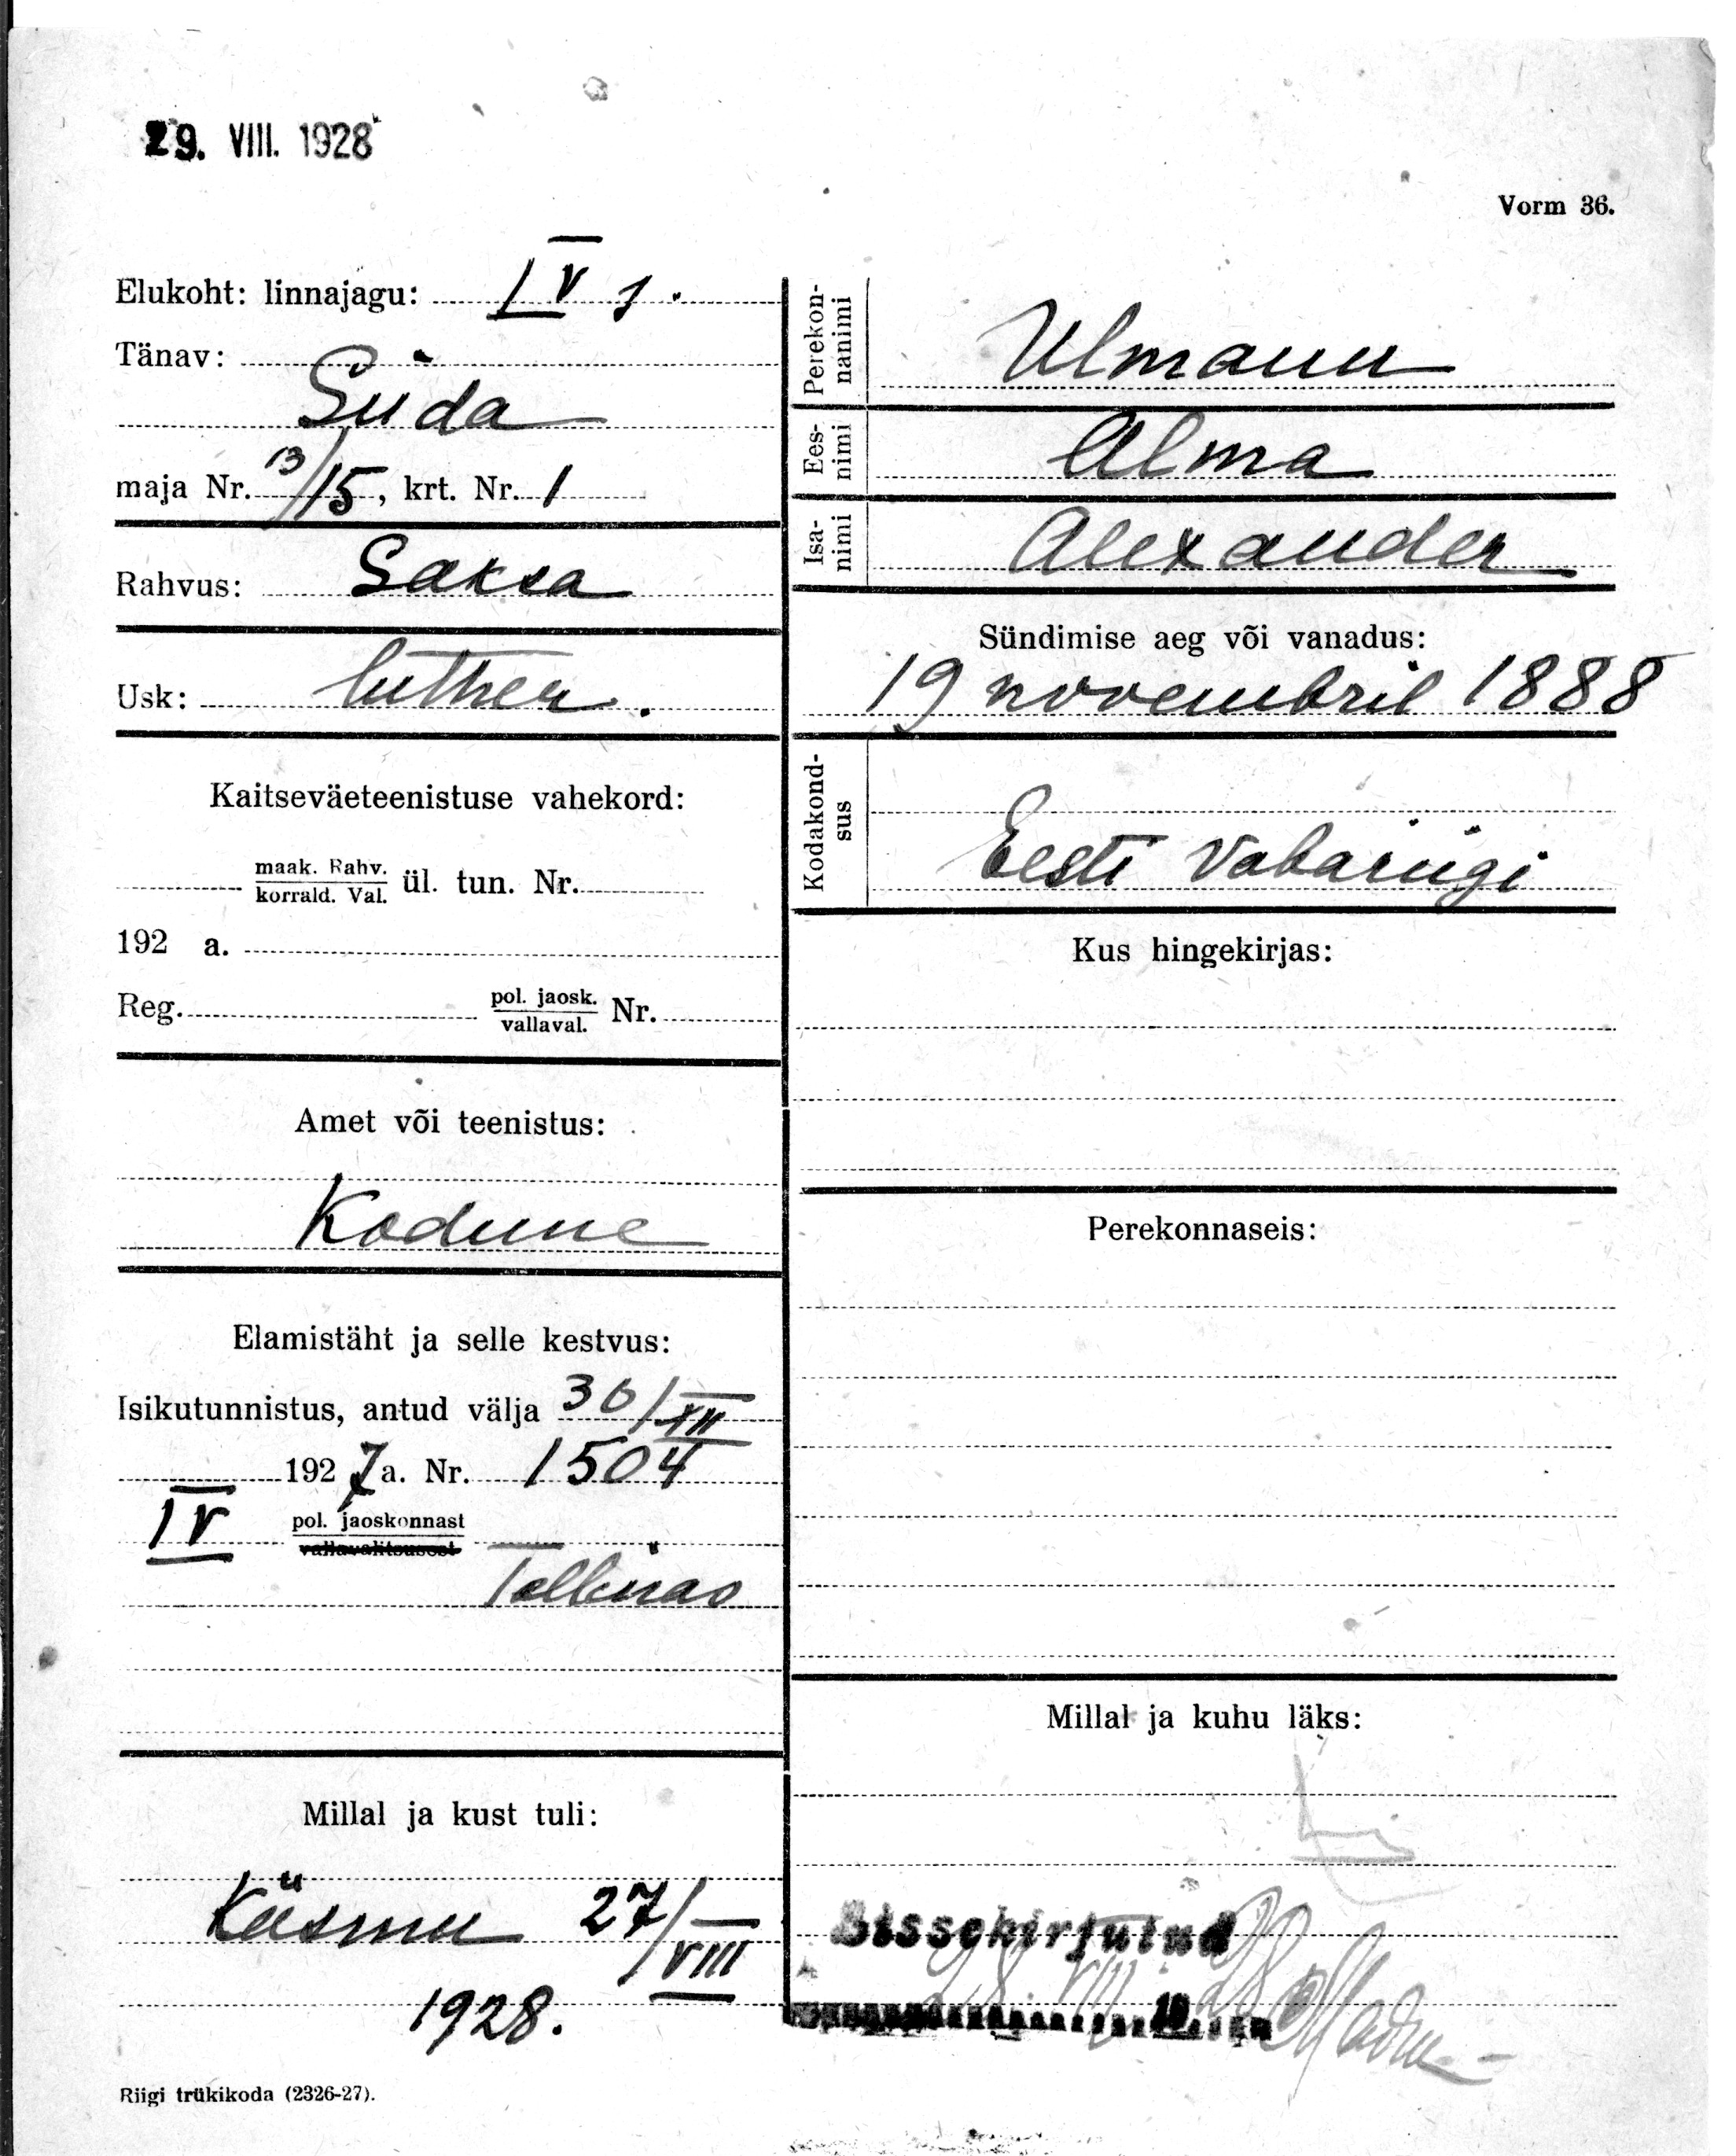 29. VIII. 1928
Vorm 36.
Elukoht: linnajagu: IV j.
Tänav:
Süda
maja Nr. 13/15, krt. Nr. 1
Rahvus: Saksa
Usk: luther.
Kaitseväeteenistuse vahekord:
maak. Rahv.
korrald. Val. ül. tun. Nr.
192 a.
Reg. pol. jaosk.
vallaval. Nr.
Amet või teenistus:
Kodune
Elamistäht ja selle kestvus:
Isikutunnistus, antud välja 30/XII
1927 a. Nr. 1504
IV pol. jaoskonnast
vallavalitsusest
Tallinas
Millal ja kust tuli:
Käsmu 27/VIII
1928.
Riigi trükikoda (2326-27).
Perekon-
nanimi Ulmann
Ees-
nimi Alma
Isa-
nimi Alexander
Sündimise aeg või vanadus:
19 novembril 1888
Kodakond-
sus Eesti Vabariigi
Kus hingekirjas:
Perekonnaseis:
Millal ja kuhu läks:
Sissekirjutud
28. VIII 1928